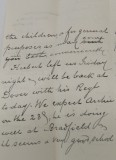 the children, & for general
purposes as
you
Hubert left on Sunday
night & will be back at
Dover with his Regt
to day. We expect Archie
on the 23rd. he is doing
well at Bradfield
it seems a very good school